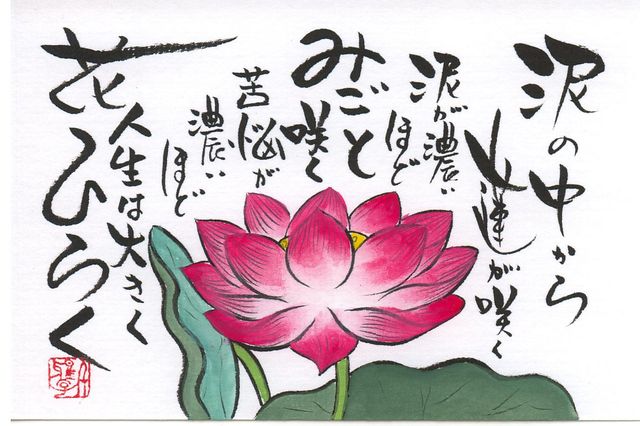 泥の中から
蓮が咲く
泥が濃い
ほど
みごと
咲く
苦悩が
濃い
ほど
人生は大きく
花ひらく